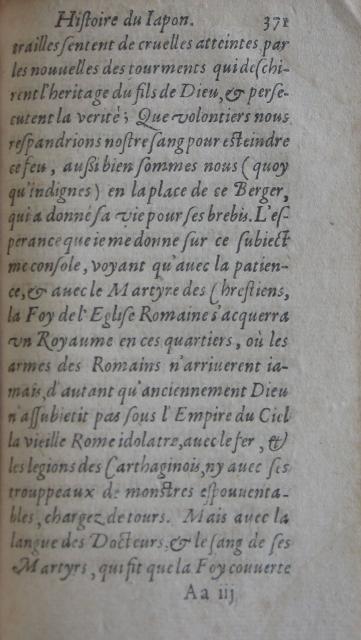 Histoire du Iapon. 371
trailles sentent de cruelles atteintes par
les nouuelles des tourments qui deschi-
rent l'heritage du fils de Dieu, & perse-
cutent la verité; Que volontiers nous
respandrions nostre sang pour esteindre
ce feu, aussi bien sommes nous (quoy
qu'indignes) en la place de ce Berger,
qui a donné sa vie pour ses brebis. L'es-
perance que ie me donne sur ce subiect
me console, voyant qu'auec la patien-
ce, & auec le Martyre des Chrestiens,
la Foy de l'Eglise Romaine s'acquerra
vn Royaume en ces quartiers, où les
armes des Romains n'arriuerent ia-
mais, d'autant qu'anciennement Dieu
n'assubietit pas sous l'Empire du Ciel
la vieille Rome idolatre, auec le fer, &
les legions des Carthaginois, ny auec ses
trouppeaux de monstres espouuenta-
bles, chargez de tours. Mais auec la
langue des Docteurs, & le sang de ses
Martyrs, qui fit que la Foy couuerte
Aa iij